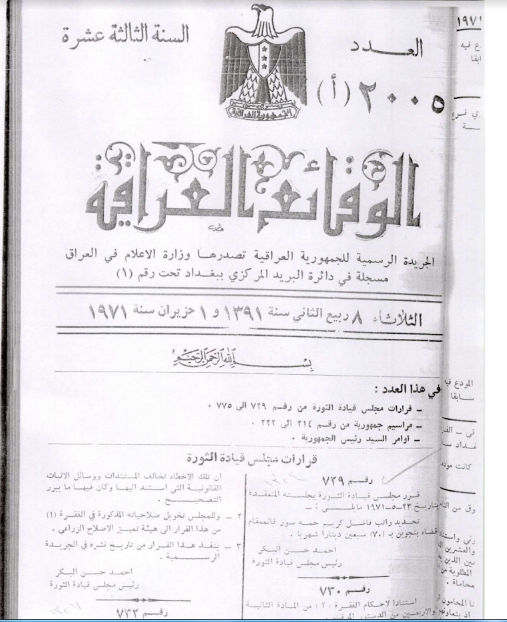 السنة الثالثة عشرة
العدد
٢٠٠٥ (أ)
الجمهورية العراقية
الوقائع العراقية
الجريدة الرسمية للجمهورية العراقية تصدرها وزارة الاعلام في العراق
مسجلة في دائرة البريد المركزي ببغداد تحت رقم (١)
الثلاثاء ٨ ربيع الثاني سنة ١٣٩١ و ١ حزيران سنة ١٩٧١
بسم الله الرحمن الرحيم
في هذا العدد :
ـ قرارات مجلس قيادة الثورة من رقم ٧٢٩ الى ٧٧٥ .
ـ مراسيم جمهورية من رقم ٢١٤ الى ٢٢٢ .
ـ اوامر السيد رئيس الجمهورية .
قرارات مجلس قيادة الثورة
رقم ٧٢٩
قرر مجلس قيادة الثورة بجلسته المنعقدة
بتاريخ ٢٣-٥-١٩٧١ مايلي :ـ
تحديد راتب فاضل كريم حمه سور قائممقام
قضاء بنجوين بـ (٧٠) سبعين دينارا شهريا .
احمد حسن البكر
رئيس مجلس قيادة الثورة
رقم ٧٣٠
استنادا لاحكام الفقرة (٢) من المادة الثانية
والاربعين من الدستور المؤقت
ان تلك الاخطاء تخالف المستندات ووسائل الاثبات
القانونية التي استند اليها وكان فيها ما يبرر
التصحيح .
٢ ـ وللمجلس تخويل صلاحياته المذكورة في الفقرة (١)
من هذا القرار الى هيئة تمييز الاصلاح الزراعي .
٣ ـ ينفذ هذا القرار من تاريخ نشره في الجريدة
الرسمية .
احمد حسن البكر
رئيس مجلس قيادة الثورة
رقم ٧٣٢
١٩٧١
المودع
سابقا
كانت